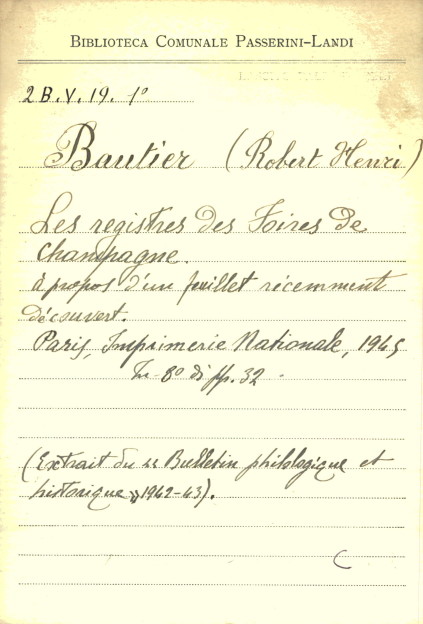 BIBLIOTECA COMUNALE PASSERINI-LANDI
2 B. V. 19. 1º
Bautier (Robert Henri)
Les registres des Foires de
Champagne.
à propos d'un feuillet récemment
découvert.
Paris, Imprimerie Nationale, 1945
In-8º di pp. 32.
(Extrait du "Bulletin philologique et
historique" 1942-43).
C